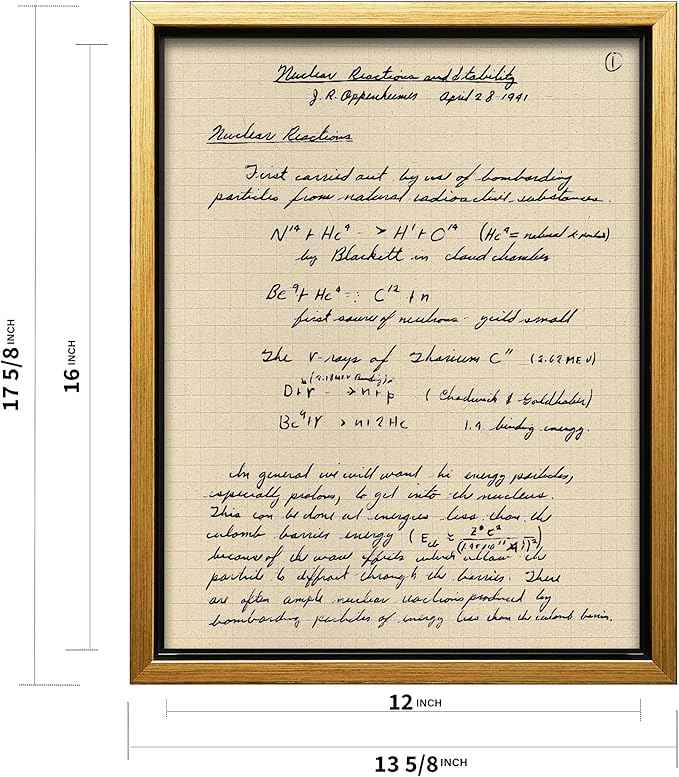 ①
Nuclear Reactions and Stability
J. R. Oppenheimer April 28 1941
Nuclear Reactions
First carried out by use of bombarding
particles from natural radioactive substances.
N¹⁴ + He⁴ -> H¹ + O¹⁴ (He⁴ = natural α particle)
by Blackett in cloud chamber
Be⁹ + He⁴ -: C¹² + n
first source of neutrons - yield small
The γ-rays of Thorium C" (2.62 MEV)
(2.18 MEV Binding)
D + γ -> n + p (Chadwick & Goldhaber)
Be⁹ + γ > n + 2He 1.9 binding energy.
In general we will want hi energy particles,
especially protons, to get into the nucleus.
This can be done at energies less than the
culomb barrier energy (
because of the wave effects which allow the
particle to diffract through the barrier. There
are often ample nuclear reactions produced by
bombarding particles of energy less than the culomb barrier.
17 5/8 INCH
16 INCH
12 INCH
13 5/8 INCH